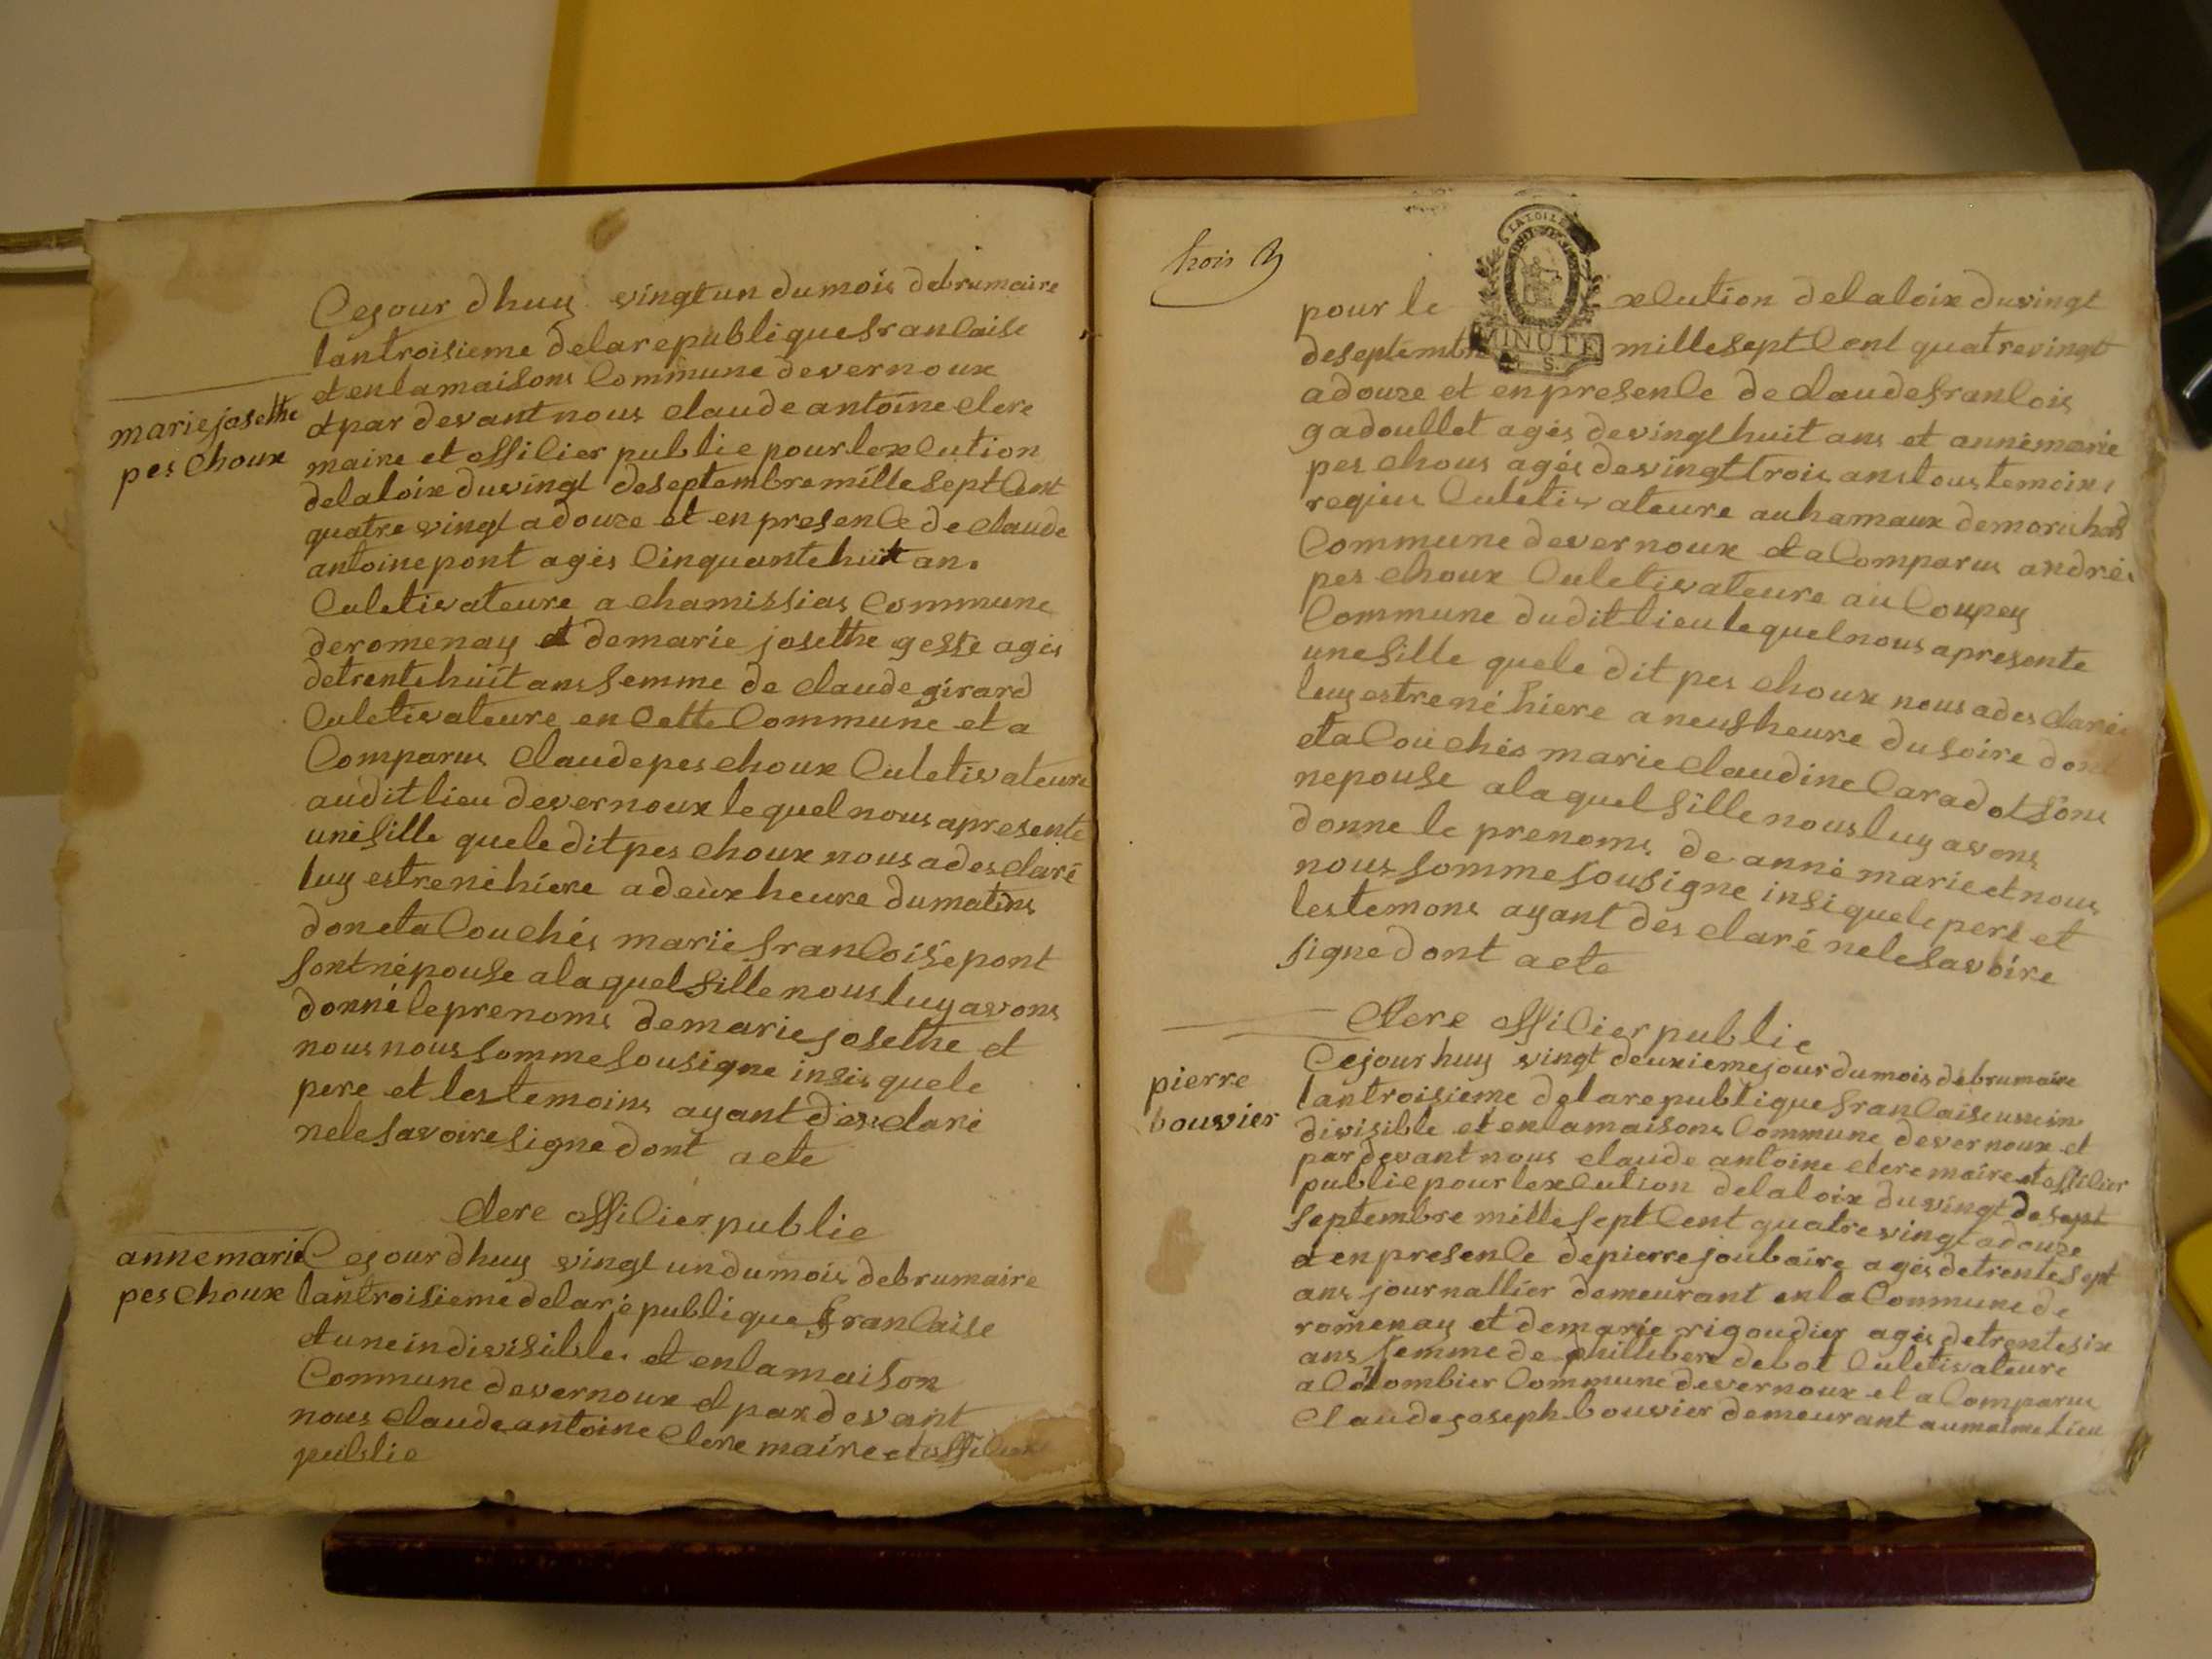 Cejour dhuy vingt un du mois debrumaire
lantroisieme delarepublique francaise
et enlamaisons Commune devernoux
mariejosethe
pes choux
et par devant nous claude antoine clere
maire et officier public pour lexcution
delaloix duvingt deseptembre mille sept Cent
quatre vingt adouze et en presence de claude
antoine pont agés Cinquante huit ans
Culetivateure a chamissias Commune
deromenay et demarie josethe gesse agés
detrente huit ans femme de claude girard
Culetivateure en Cette Commune et a
Comparus Claude pes choux Culetivateure
audit lieu devernoux lequel nous apresente
unefille quele dit pes choux nous ades claré
luy estrené hiere adeux heure dumatins
doneta Couchés marie francoise pont
sont népouse alaquel fille nous luy avons
donné leprenoms demarie josethe et
nous nous somme sousigne insis quele
pere et les temoins ayant des claré
nelesavoire signe dont acte
clere officier public
anne marie
pes choux
Cejour dhuy vingt un dumois debrumaire
lantroisieme delarépublique francaise
et uneindivisible et enlamaison
Commune devernoux et par devant
nous claude antoine clere maire et officier
public
trois 3
pour le xcution delaloix duvingt
LA LOI LE
MINUTE
S.
deseptembre mille sept Cent quatrevingt
adouze et en presence de claude francois
gadoullet agés devingt huit ans et annémarie
pes chous agés devingt trois ans tous temoins
requis Culetivateure au hamaux
Commune devernoux et a Comparus andrés
pes choux Culetivateure au Coupey
Commune dudit lieu lequel nous apresente
unefille quele dit pes choux nous ades claré
luy estrené hiere a neuf heure dusoire dont
eta Couchés marie claudine Caradot sons
nepouse alaquel fille nous luy avons
donne le prenoms de anné marie et nous
nous somme sousigne insi quele pere et
les temons ayant des claré nelesavoire
signe dont acte
Clere officier public
pierre
bouvier
Cejour huy vingt deuxieme jour du mois debrumaire
lantroisieme delarepublique francaise unein
divisible et enlamaisons Commune devernoux et
par devant nous claude antoine clere maire et officier
public pour lexcution delaloix duvingt de sept
septembre mille sept Cent quatre vingt adouze
et en presence depierre joubaire agés detrente sept
ans journallier demeurant enla Commune de
romenay et demarie rigoudier agés detrente six
ans femme de phillibere debot Culetivateure
a Colombier Commune devernoux et a Comparus
Claude joseph bouvier demeurant aumeme lieu